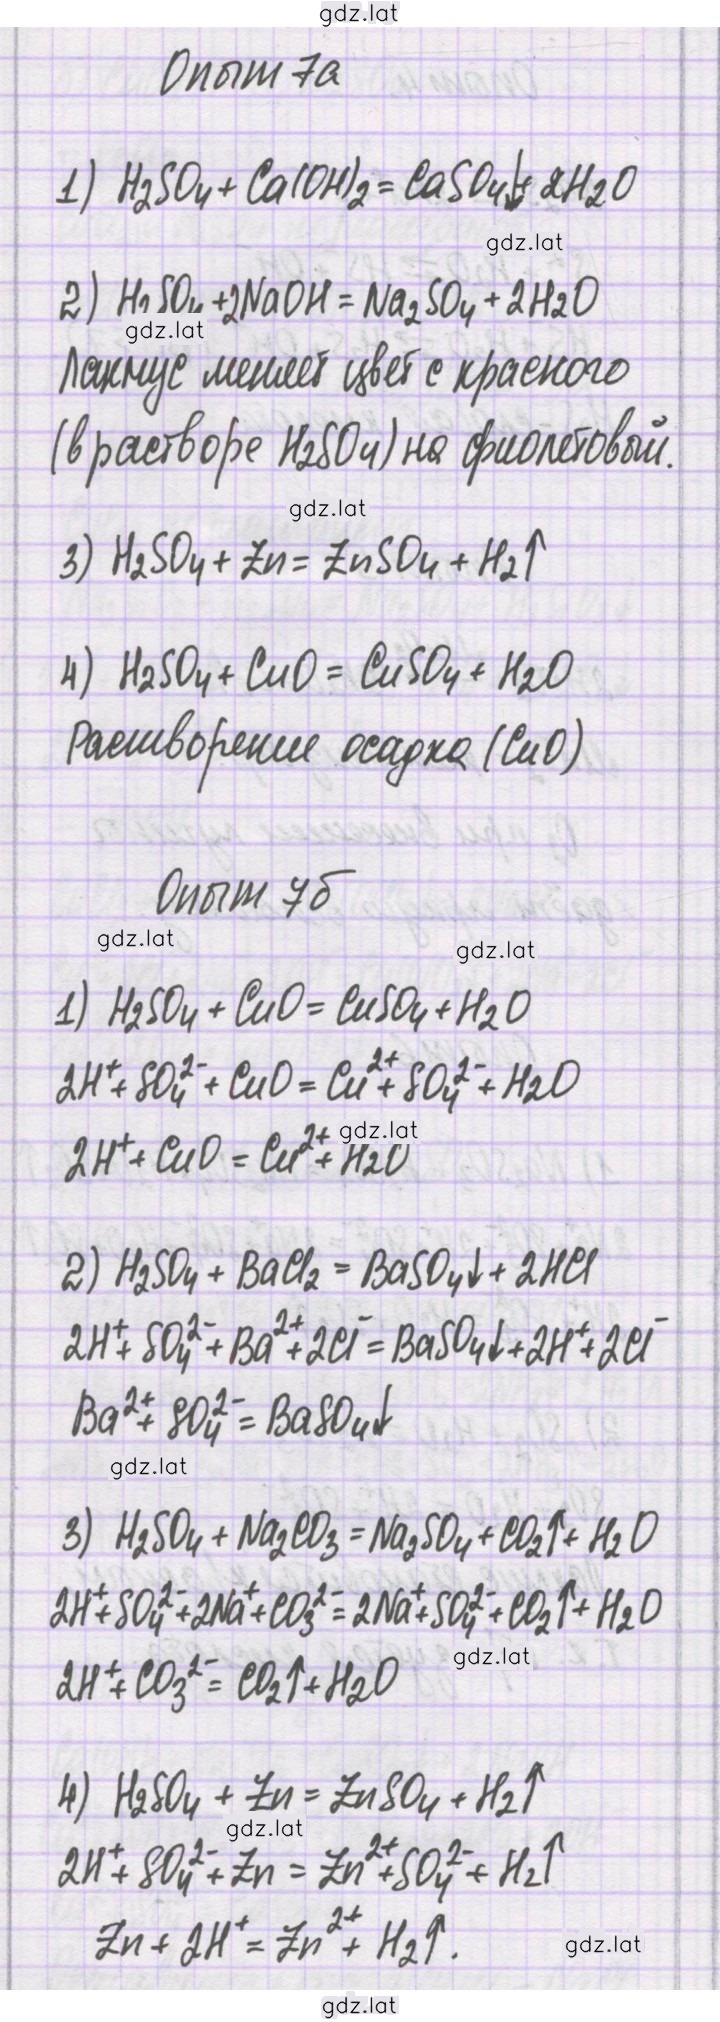 gdz.lat
Опыт 7а
1) H₂SO₄ + Ca(OH)₂ = CaSO₄↓ + 2H₂O
gdz.lat
2) H₂SO₄ + 2NaOH = Na₂SO₄ + 2H₂O
gdz.lat
Лакмус меняет цвет с красного
(в растворе H₂SO₄) на фиолетовый.
gdz.lat
3) H₂SO₄ + Zn = ZnSO₄ + H₂↑
4) H₂SO₄ + CuO = CuSO₄ + H₂O
Растворение осадка (CuO)
Опыт 7б
gdz.lat
gdz.lat
1) H₂SO₄ + CuO = CuSO₄ + H₂O
2H⁺ + SO₄²⁻ + CuO = Cu²⁺ + SO₄²⁻ + H₂O
gdz.lat
2H⁺ + CuO = Cu²⁺ + H₂O
2) H₂SO₄ + BaCl₂ = BaSO₄↓ + 2HCl
2H⁺ + SO₄²⁻ + Ba²⁺ + 2Cl⁻ = BaSO₄↓ + 2H⁺ + 2Cl⁻
Ba²⁺ + SO₄²⁻ = BaSO₄↓
gdz.lat
3) H₂SO₄ + Na₂CO₃ = Na₂SO₄ + CO₂↑ + H₂O
2H⁺ + SO₄²⁻ + 2Na⁺ + CO₃²⁻ = 2Na⁺ + SO₄²⁻ + CO₂↑ + H₂O
gdz.lat
2H⁺ + CO₃²⁻ = CO₂↑ + H₂O
4) H₂SO₄ + Zn = ZnSO₄ + H₂↑
gdz.lat
2H⁺ + SO₄²⁻ + Zn = Zn²⁺ + SO₄²⁻ + H₂↑
Zn + 2H⁺ = Zn²⁺ + H₂↑.
gdz.lat
gdz.lat